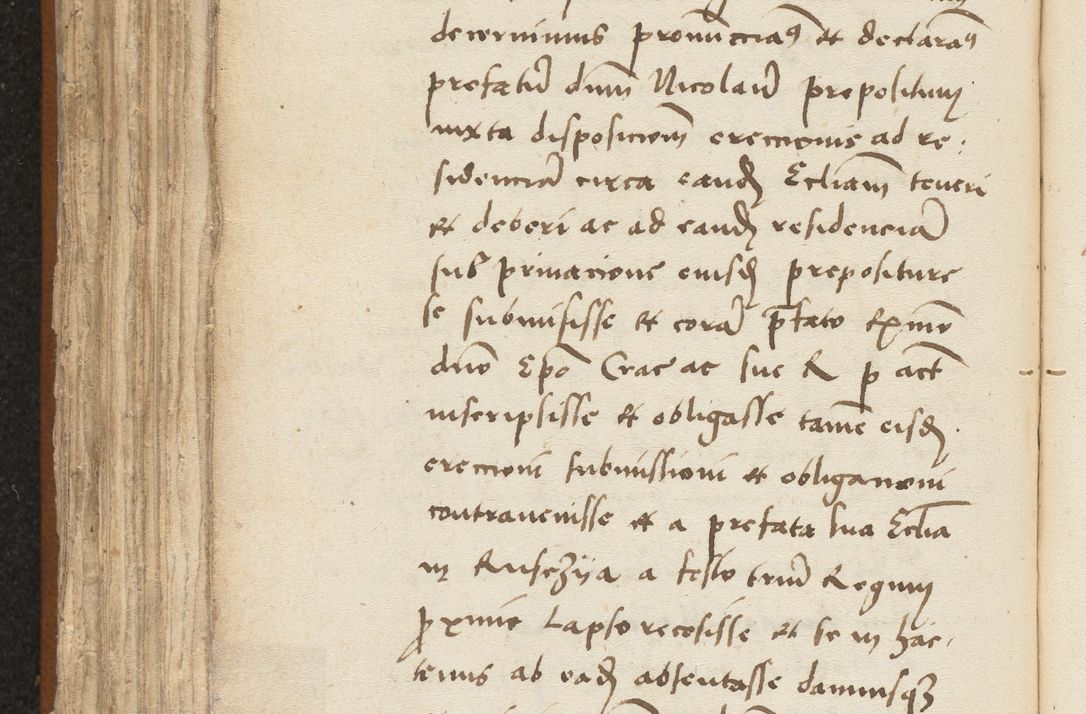 decernimus pronuncciaꝰ et declaraꝰ
prefatū dnm̄ Nicolaū prepositum
iuxta disposicionē ereccionis ad re-
sidenciā circa eandē Eccliam̄ teneri
et deberi ac ad eandē residenciā
sub privacione eiusdē prepositure
se submisisse et corā p̄fato Rx̄mo
dno Epo Crac ac sue R p act
inscripsisse et obligasse tamē eisdē
ereccioni submissioni et obligacioni
contravenisse et a prefata sua Ecclia
in Rusczÿa a festo triū Regum
proxime Lapso recesisse et se in hac-
tenus ab eadē absentasse damusqꝫ